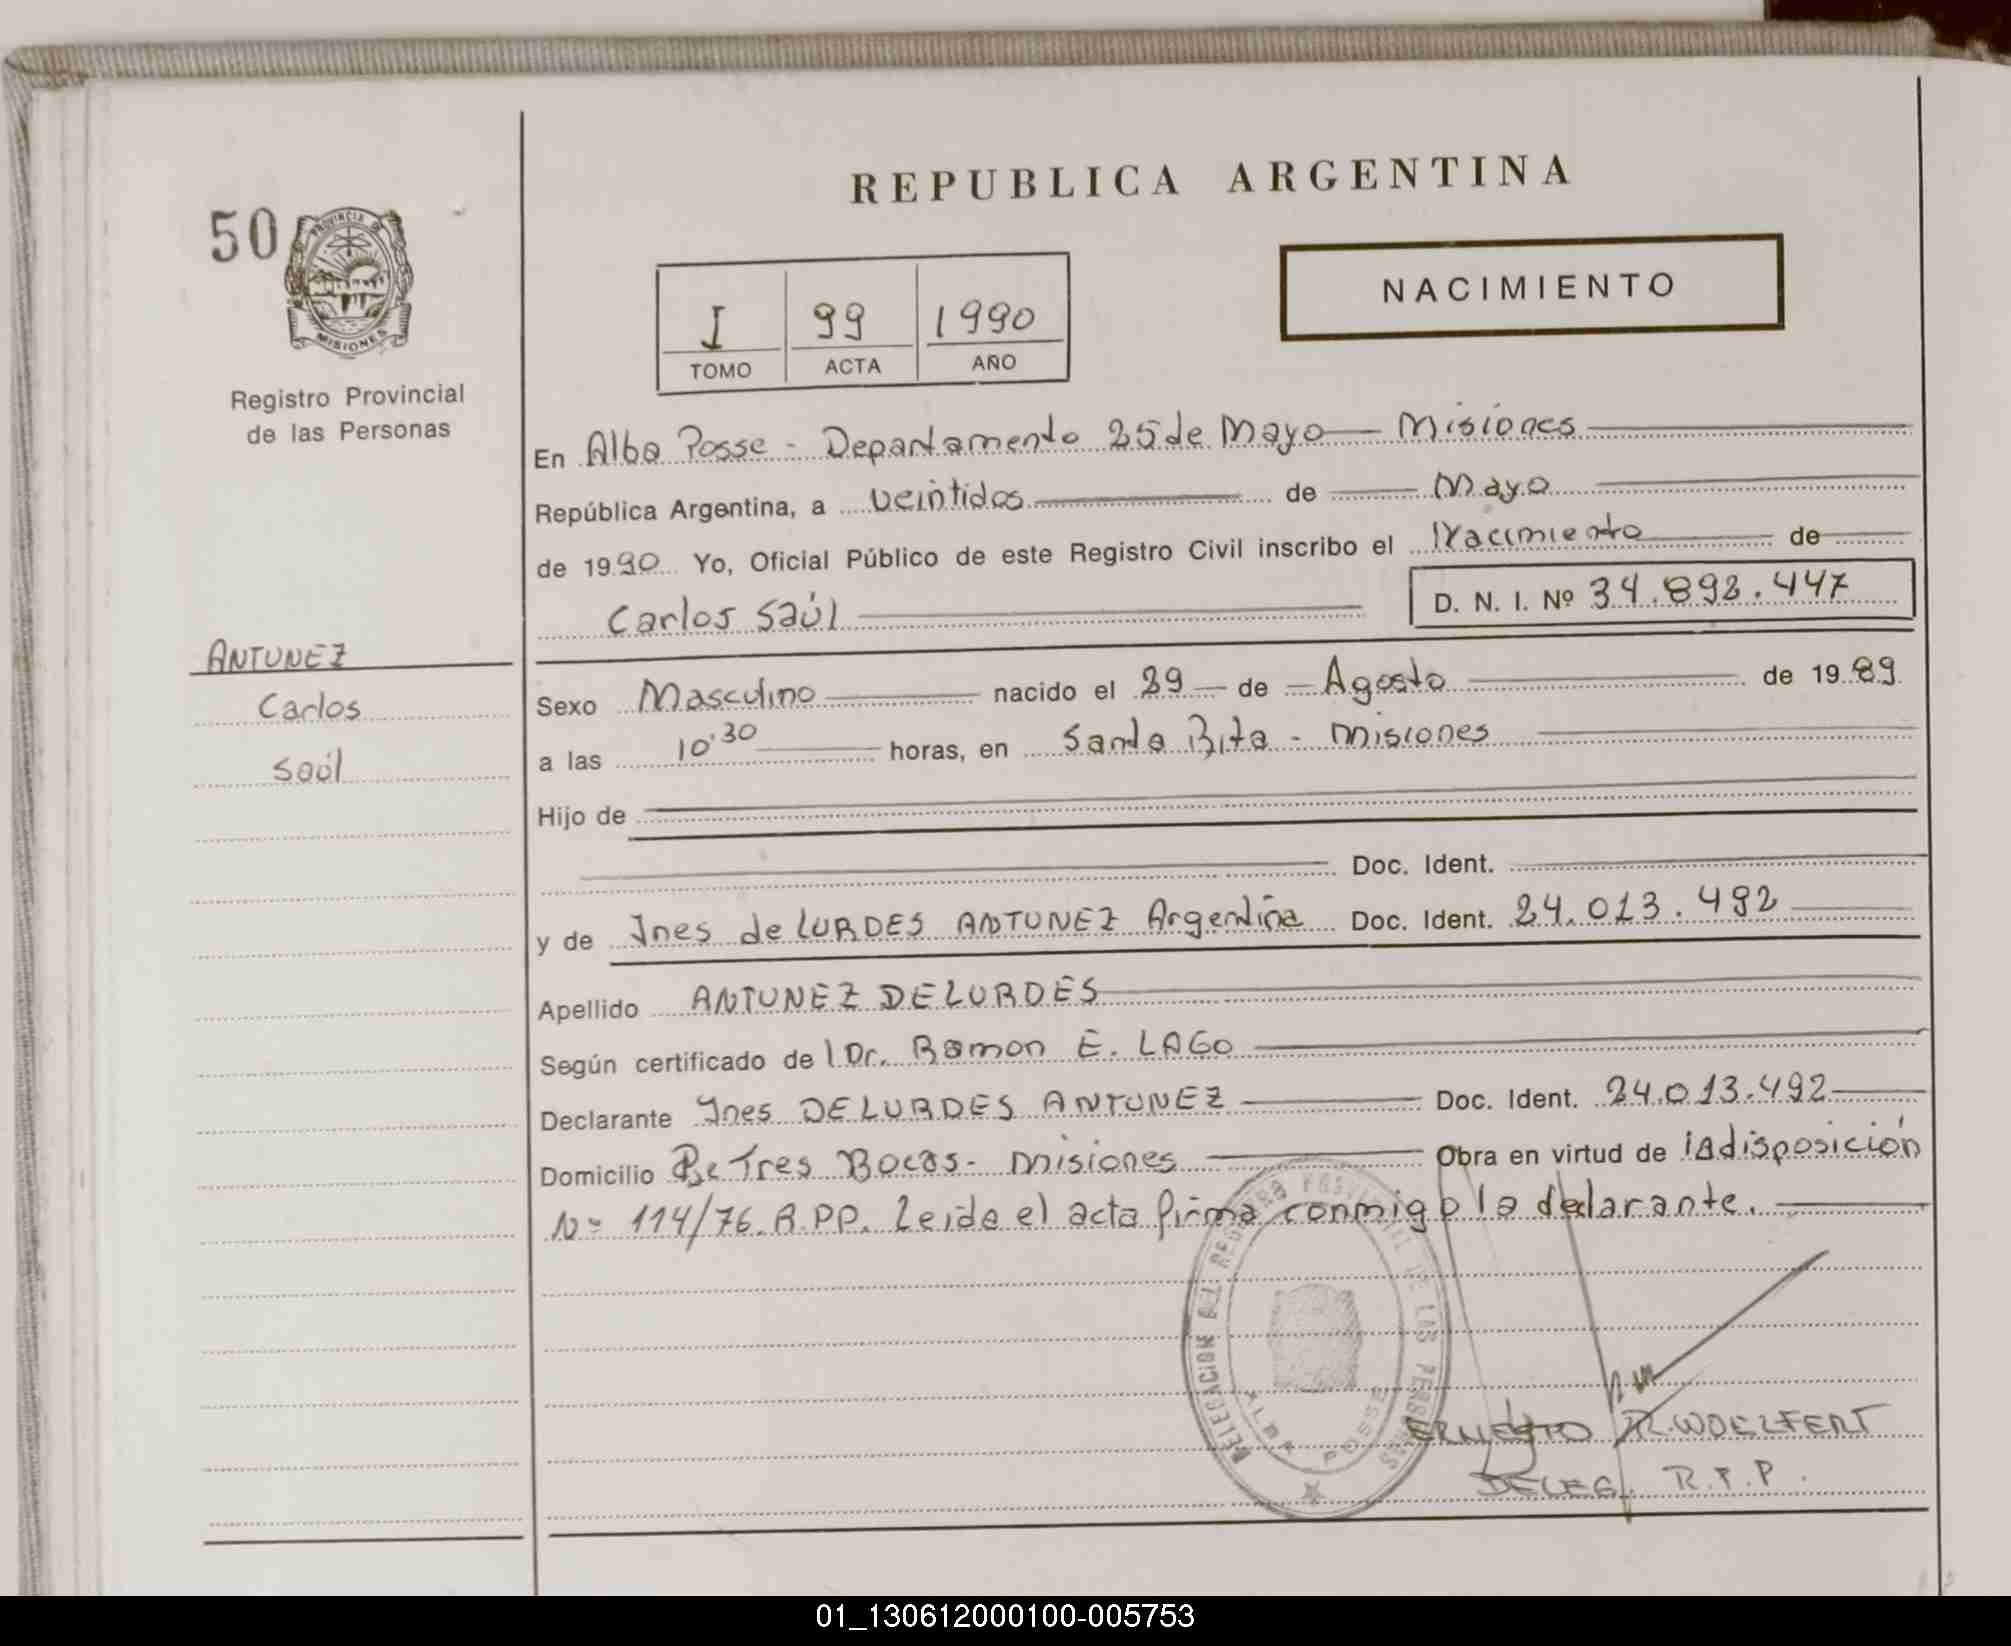 REPUBLICA ARGENTINA
50
PROVINCIA DE
MISIONES
Registro Provincial
de las Personas
I 99 1990
TOMO ACTA AÑO
NACIMIENTO
En Alba Posse - Departamento 25 de Mayo - Misiones
República Argentina, a veintidos de Mayo
de 1990 Yo, Oficial Público de este Registro Civil inscribo el Nacimiento de
Carlos Saúl
D. N. I. Nº 34.892.447
ANTUNEZ
Carlos
Saúl
Sexo Masculino nacido el 29 de Agosto de 1989
a las 10'30 horas, en Santa Rita - Misiones
Hijo de
Doc. Ident.
y de Ines de LURDES ANTUNEZ Argentina Doc. Ident. 24.013.492
Apellido ANTUNEZ DELURDES
Según certificado de Dr. Ramon E. LAGO
Declarante Ines DELURDES ANTUNEZ Doc. Ident. 24.013.492
Domicilio Pje Tres Bocas - Misiones Obra en virtud de indisposición
Nº 114/76.R.PP. Leida el acta firma conmigo la declarante.
DELEGACION DEL REGISTRO PROVINCIAL DE LAS PERSONAS
ALBA POSSE
ERNESTO R. WOELFERT
DELEG. R.P.P.
01_130612000100-005753